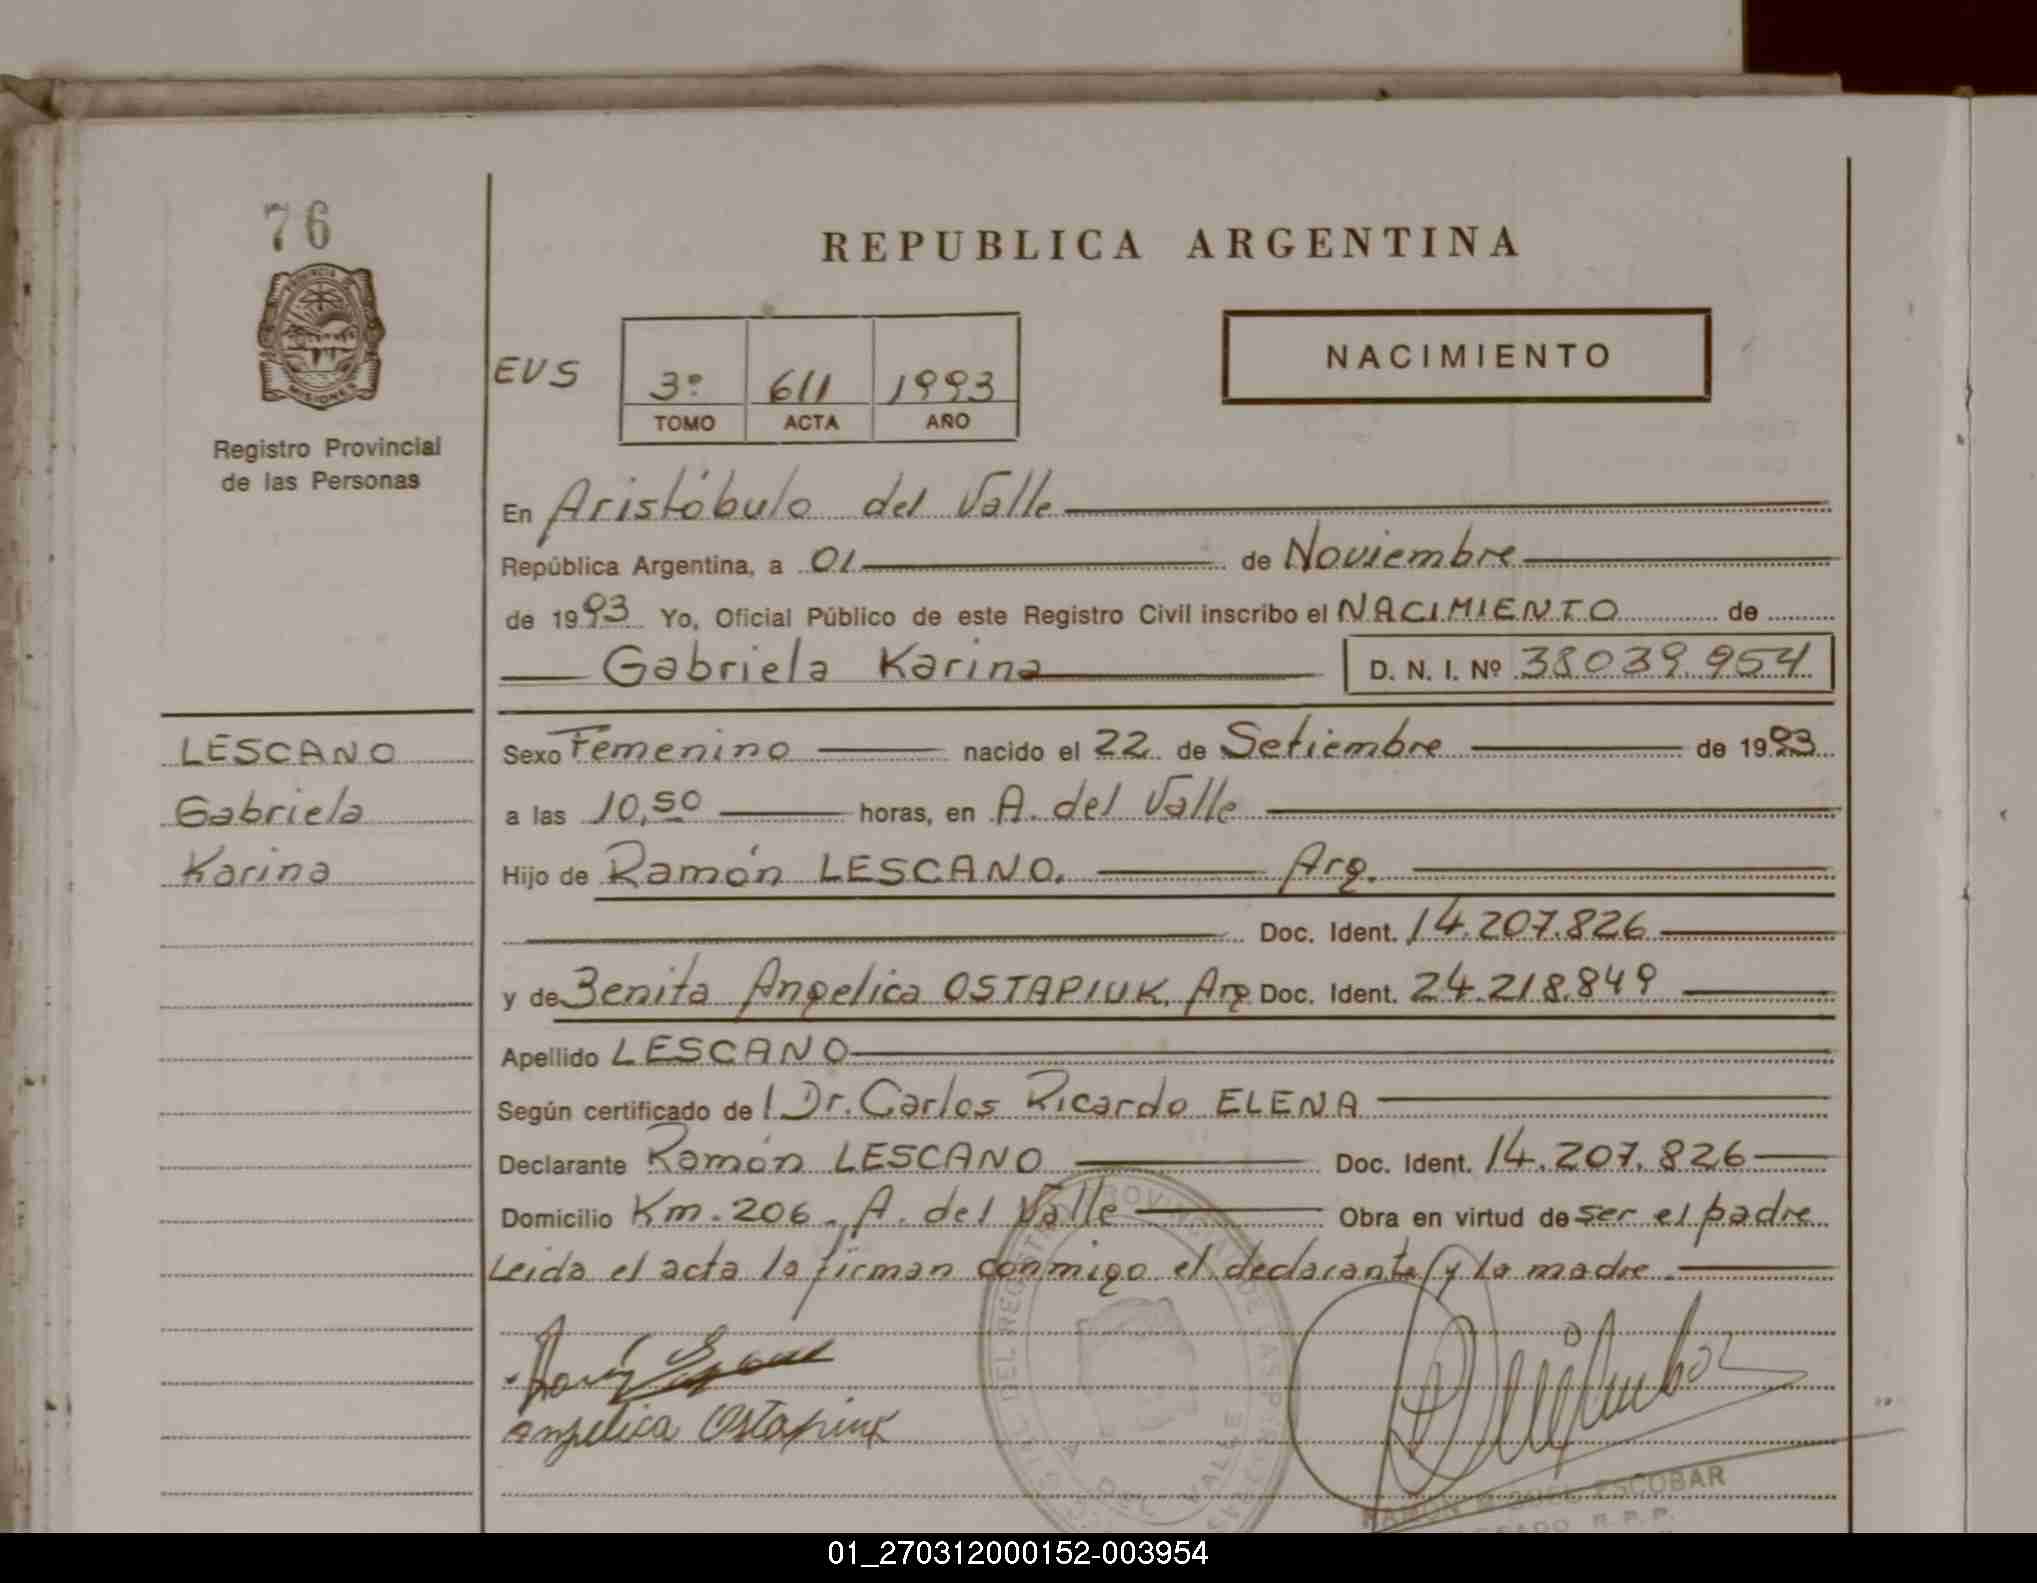 76
PROVINCIA
MISIONES
Registro Provincial
de las Personas
LESCANO
Gabriela
Karina
REPUBLICA ARGENTINA
EVS
3º 611 1993
TOMO ACTA AÑO
NACIMIENTO
En Aristóbulo del Valle
República Argentina, a 01 de Noviembre
de 1993 Yo, Oficial Público de este Registro Civil inscribo el NACIMIENTO de
Gabriela Karina D. N. I. Nº 38039.954
Sexo Femenino nacido el 22 de Setiembre de 1993
a las 10,50 horas, en A. del Valle
Hijo de Ramón LESCANO. Arg.
Doc. Ident. 14.207.826
y de Benita Angelica OSTAPIUK, Arg Doc. Ident. 24.218.849
Apellido LESCANO
Según certificado de l Dr. Carlos Ricardo ELENA
Declarante Ramón LESCANO Doc. Ident. 14.207.826
Domicilio Km. 206. A. del Valle Obra en virtud de ser el padre
Leida el acta la firman conmigo el declarante y la madre.
Angelica Ostapiuk
DEL VALLE
ESCOBAR
R.P.P.
01_270312000152-003954